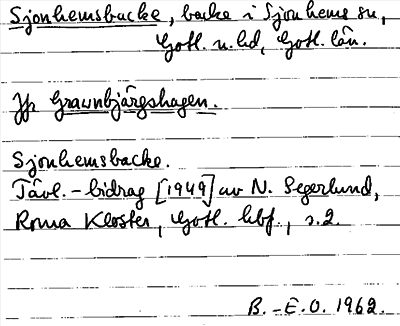 Sjonhemsbacke, backe i Sjonhems sn,
Gotl. n. hd, Gotl. län.
Jfr Graunbjärgshagen.
Sjonhemsbacke.
Tävl.-bidrag [1949] av N. Segerlund,
Roma Kloster, Gotl. hbf., s.2.
B.-E.O. 1962.